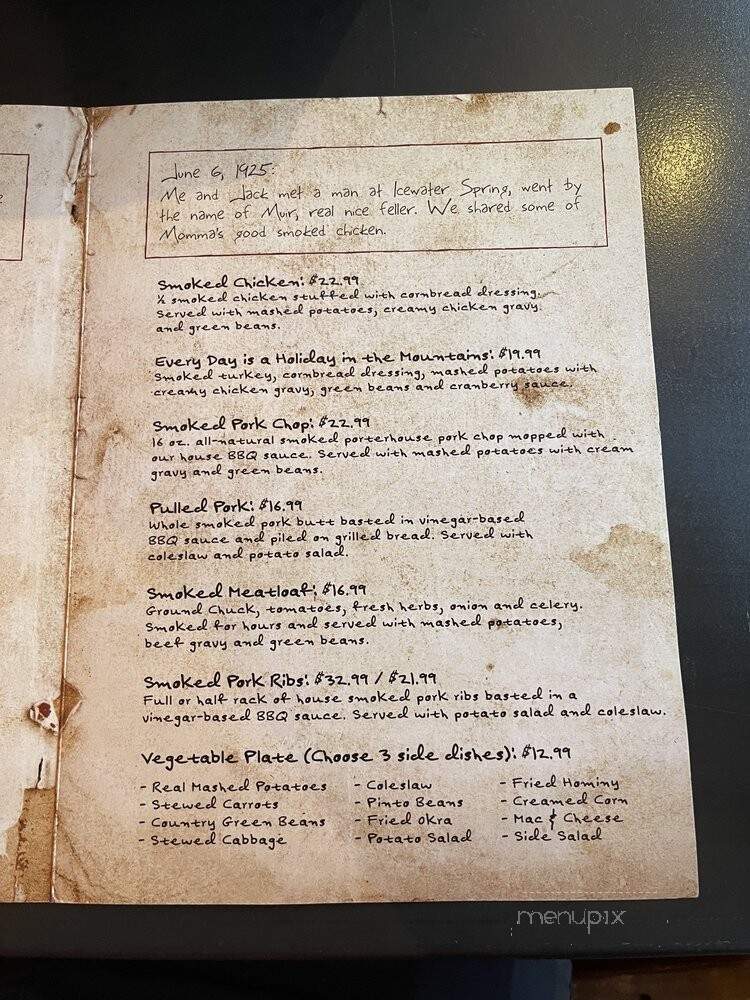 June 6, 1925:
Me and Jack met a man at Icewater Spring, went by
the name of Muir, real nice feller. We shared some of
Momma's good smoked chicken.
Smoked Chicken: $22.99
½ smoked chicken stuffed with cornbread dressing.
Served with mashed potatoes, creamy chicken gravy
and green beans.
Every Day is a Holiday in the Mountains: $19.99
Smoked turkey, cornbread dressing, mashed potatoes with
creamy chicken gravy, green beans and cranberry sauce.
Smoked Pork Chop: $22.99
16 oz. all-natural smoked porterhouse pork chop mopped with
our house BBQ sauce. Served with mashed potatoes with cream
gravy and green beans.
Pulled Pork: $16.99
Whole smoked pork butt basted in vinegar-based
BBQ sauce and piled on grilled bread. Served with
coleslaw and potato salad.
Smoked Meatloaf: $16.99
Ground Chuck, tomatoes, fresh herbs, onion and celery.
Smoked for hours and served with mashed potatoes,
beef gravy and green beans.
Smoked Pork Ribs: $32.99 / $21.99
Full or half rack of house smoked pork ribs basted in a
vinegar-based BBQ sauce. Served with potato salad and coleslaw.
Vegetable Plate (Choose 3 side dishes): $12.99
- Real Mashed Potatoes - Coleslaw - Fried Hominy
- Stewed Carrots - Pinto Beans - Creamed Corn
- Country Green Beans - Fried Okra - Mac & Cheese
- Stewed Cabbage - Potato Salad - Side Salad
menupix